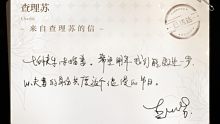 查理苏
Charlie
来自查理苏的信
七夕快乐,未婚妻。希望明年我们能更进一步,
以夫妻的身份共度这个浪漫的节日。
查理苏